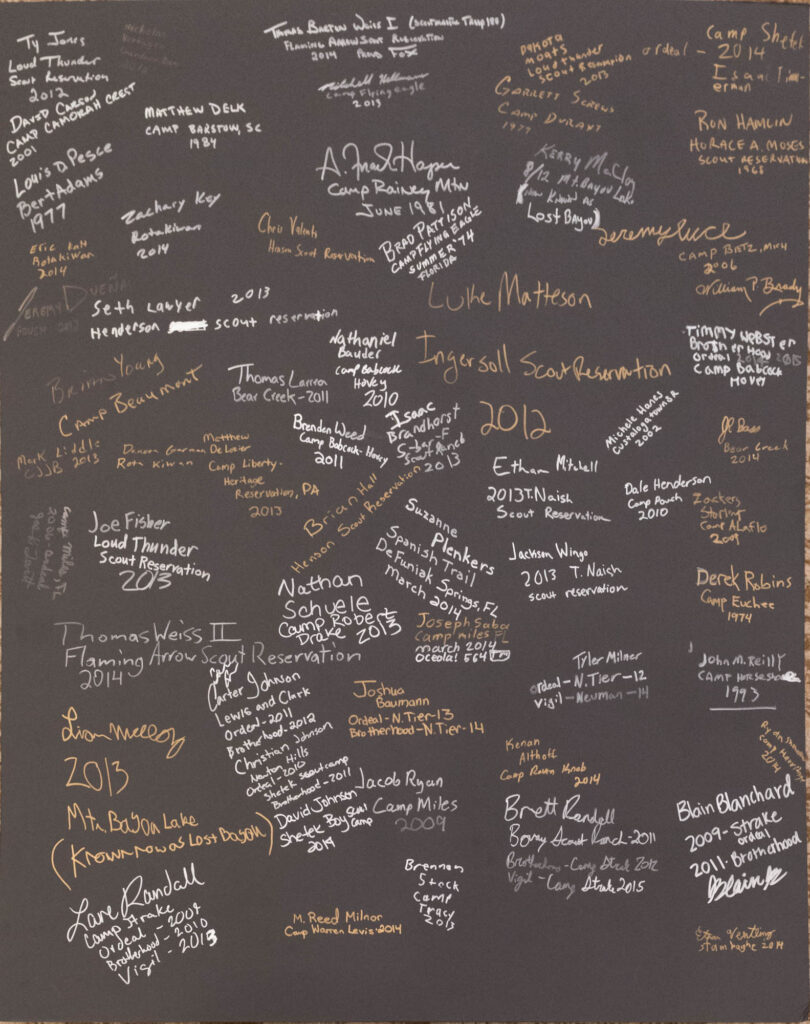 Ty Jones
Loud Thunder
Scout Reservation
2012
David Carson
Camp Camorah Crest
2001
Thomas Barton Weiss I (Scoutmaster Troop 100)
Flaming Arrow Scout Reservation
2014 Proud Fox
Mitchell
Camp Flying eagle
2013
Dakota
Moats
Loud thunder
Scout
2013
ordeal - 2014
Camp Shetek
Garrett Screws
Camp Durant
1977
Matthew Delk
Camp Barstow, SC
1984
Ron Hamlin
Horace A. Moses
Scout Reservation
1968
Louis D. Pesce
Bert Adams
1977
Zachary Key
Rotakiwan
2014
A.
Camp Rainey Mtn
June 1981
Kerry
8/12 Mt. Bayou Lake
Known as
Lost Bayou)
Eric
Rotakiwan
2014
Chris
Scout Reservation
Brad Pattison
Camp Flying Eagle
Summer '74
Florida
Jeremy Luce
Camp Betz, Mich
2006
William P. Brady
Jeremy
2013
Seth Lawyer 2013
Henderson scout reservation
Luke Matteson
Ingersoll Scout Reservation
2012
Timmy Webster
Brotherhood
Ordeal
Camp Babcock
Hovey
Brian Young
Camp Beaumont
Thomas
Bear Creek - 2011
Nathaniel
Bauder
Camp Babcock
Hovey
2010
Brenden Weed
Camp Babcock-Hovey
2011
Isaac
Brandhorst
S-bar-F
Scout Ranch
2013
Michele Hanes
Custaloga town SR
2002
Bear Creek
2014
Mark Liddle
CJJB 2013
Rota Kiwan
Matthew
DeLozier
Camp Liberty-
Heritage
Reservation, PA
2013
Brian Hall
Henson Scout Reservation
Ethan Mitchell
2013 T. Naish
Scout Reservation
Dale Henderson
Camp Pouch
2010
Zackery
Camp Alaflo
2009
Joe Fisher
Loud Thunder
Scout Reservation
2013
Suzanne
Plenkers
Spanish Trail
DeFuniak Springs, FL
March 2014
Jackson Wingo
2013 T. Naish
scout reservation
Derek Robins
Camp Euchee
1974
Nathan
Schuele
Camp Robert
Drake 2013
Joseph Saba
Camp miles FL
march 2014
Oceola! 564
Thomas Weiss II
Flaming Arrow Scout Reservation
2014
Tyler Milner
Ordeal - N.Tier - 12
Vigil - Neuman - 14
John M. Reilly
Camp Horseshoe
1993
Carter Johnson
Lewis and Clark
Ordeal - 2011
Brotherhood - 2012
Christian Johnson
Newton Hills
Ordeal - 2010
Shetek Scout camp
Brotherhood - 2011
David Johnson
Shetek Boy Scout
Camp
2014
Joshua
Baumann
Ordeal - N.Tier - 13
Brotherhood - N.Tier - 14
Liam
2013
Mtn. Bayou Lake
(Known now as Lost Bayou)
Kenan
Althoff
Camp Raven Knob
2014
Jacob Ryan
Camp Miles
2009
Brett Randell
Bovay Scout Ranch - 2011
Brotherhood - Camp Strake 2012
Vigil - Camp Strake 2015
Blain Blanchard
2009 - Strake
ordeal
2011 - Brotherhood
Blain
Lane Randall
Camp Strake
Ordeal - 2009
Brotherhood - 2010
Vigil - 2013
M. Reed Milnor
Camp Warren Levis - 2014
Brennan
Stock
Camp
Tracy
2013
2014